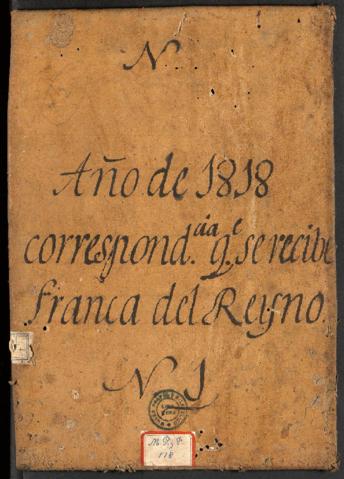 N
Año de 1818
correspond.cia q.e se recibe
franca del Reyno.
N 1